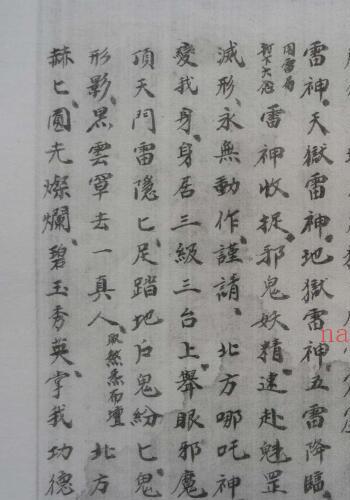 雷神。天獄雷神。地獄雷神。五雷降臨。
閃雷局
雷神收捉邪鬼妖精。速赴魁罡
滅形。永無動作。謹請、北方哪吒神
變我身、身居三級三台上、舉眼邪魔
頂天門雷隱匕、足踏地户鬼紛匕、鬼
形影、黑雲罩去一真人、而壇 北方
赫匕、圓光燦爛、碧玉秀英、掌我功德
na